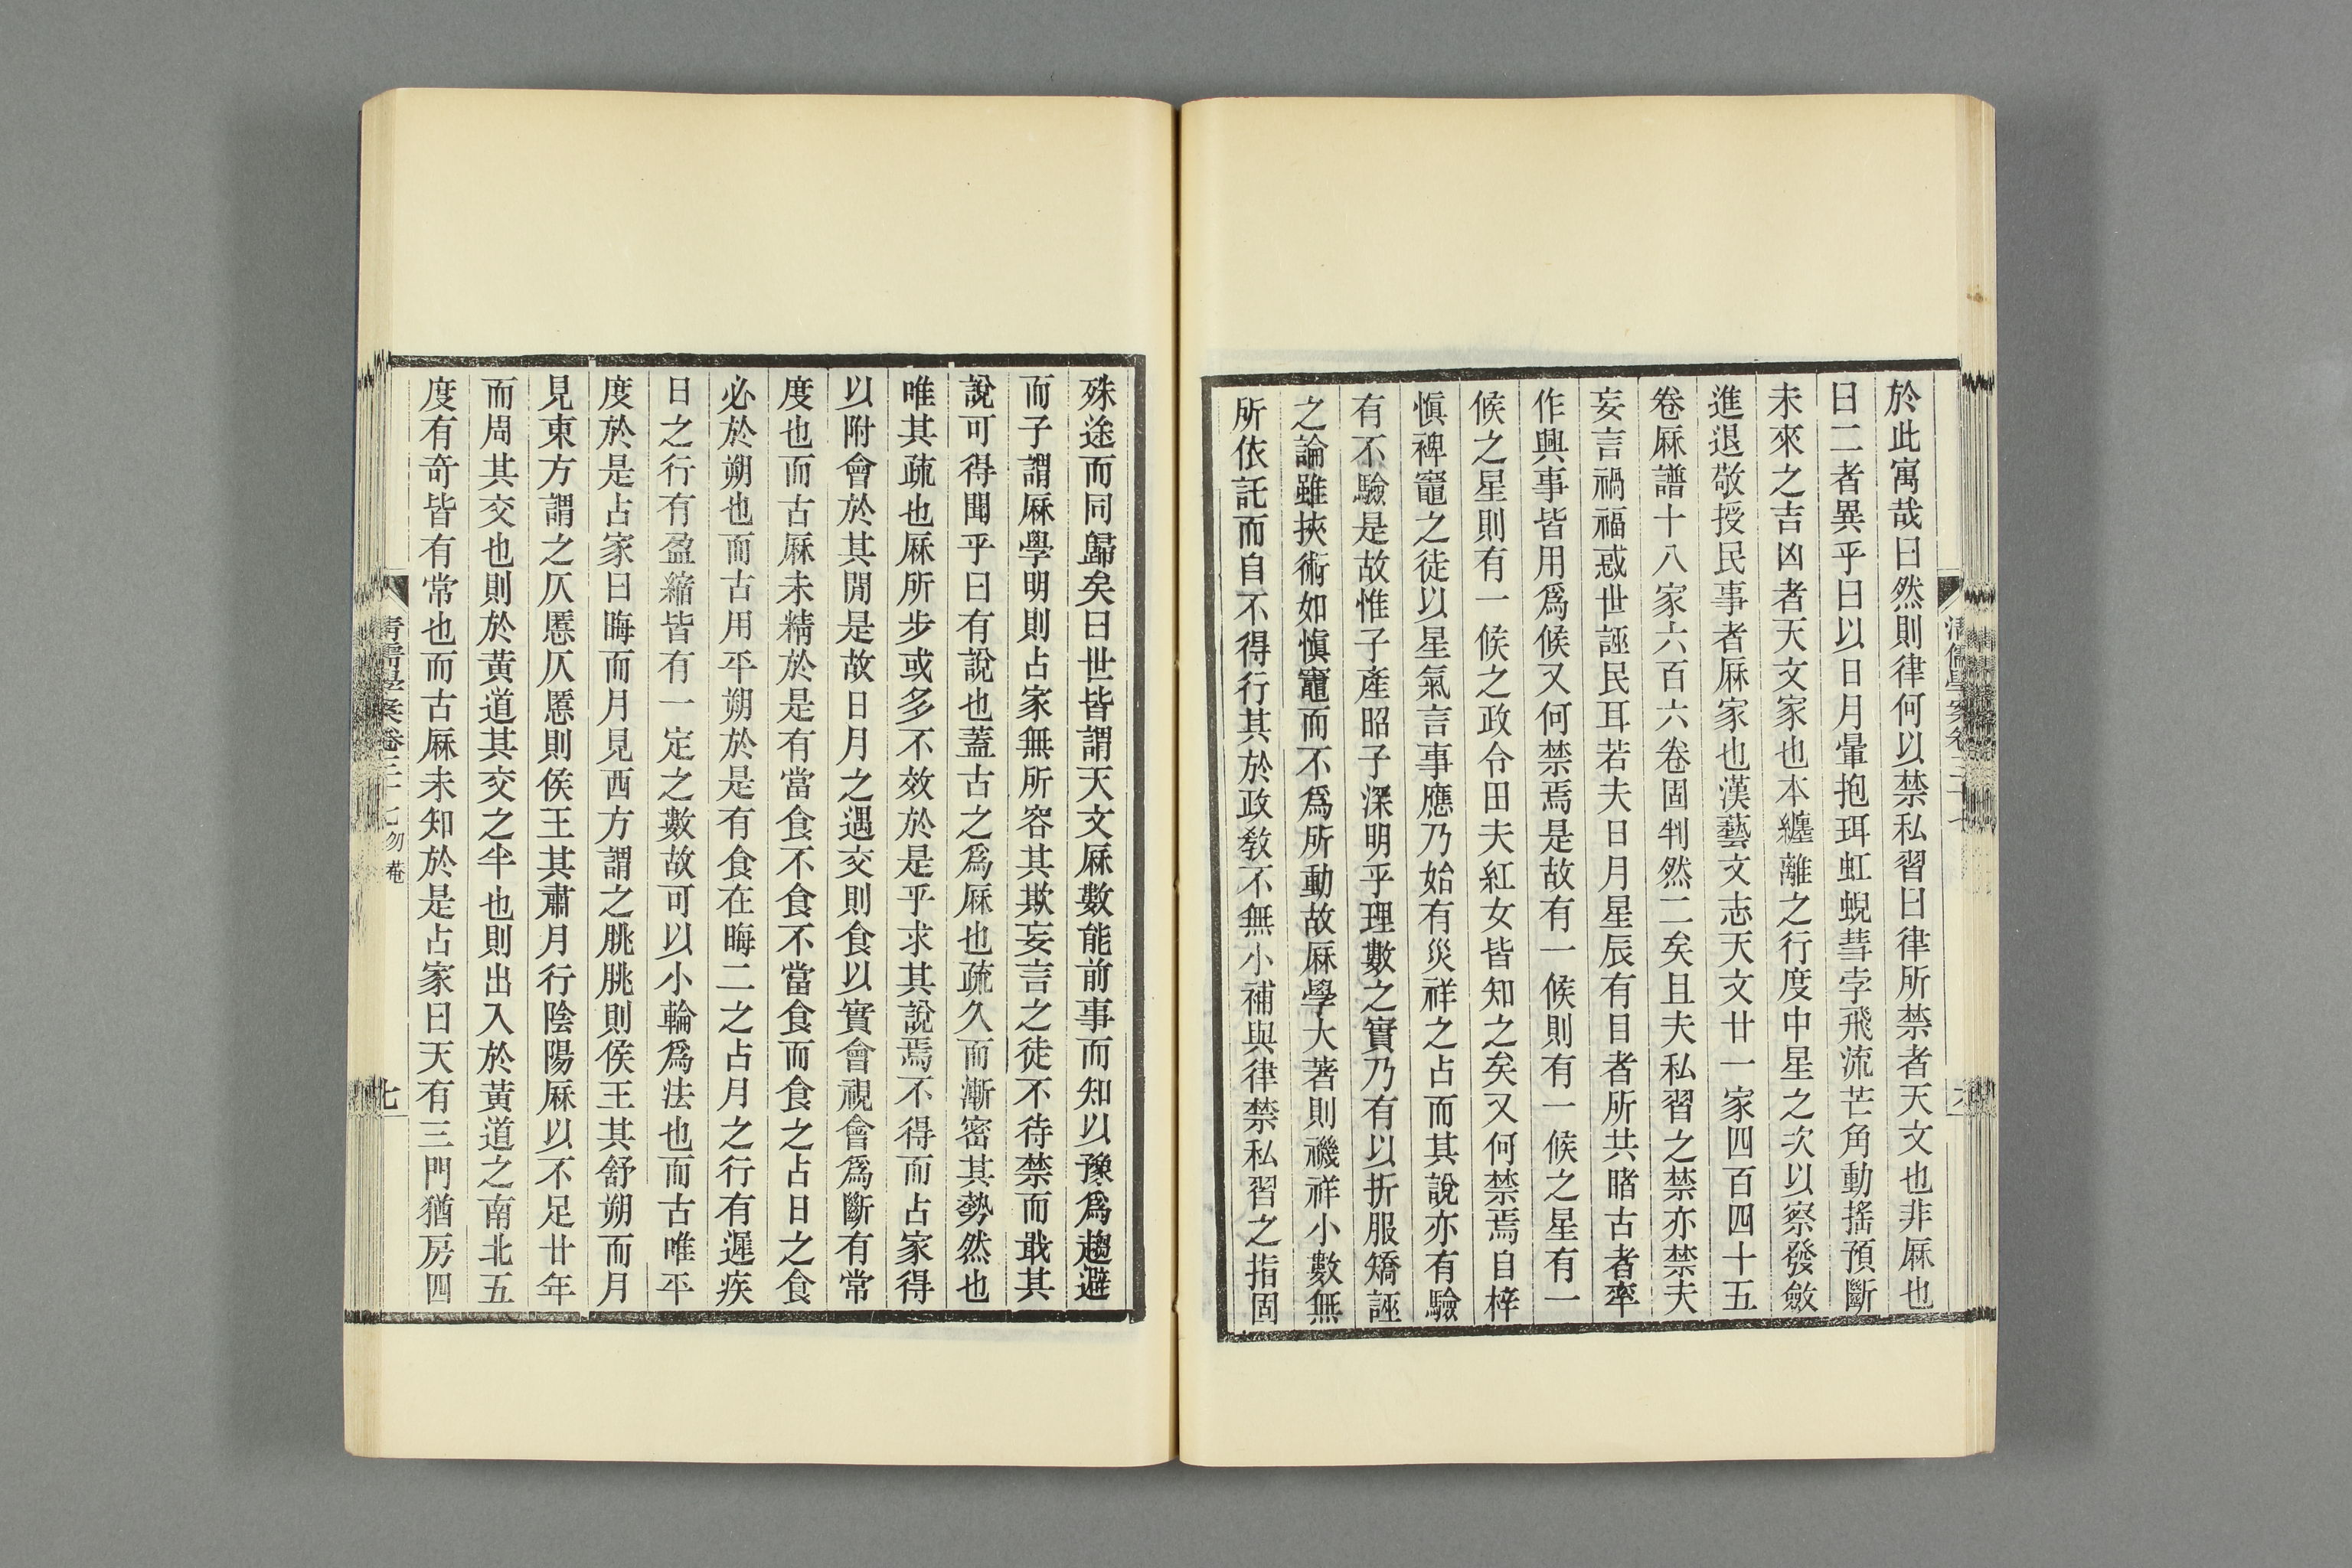 於此寓哉曰然則律何以禁私習曰律所禁者天文也非厤也
曰二者異乎曰以日月暈抱珥虹蜺彗孛飛流芒角動搖預斷
未來之吉凶者天文家也本纏離之行度中星之次以察發斂
進退敬授民事者厤家也漢藝文志天文廿一家四百四十五
卷厤譜十八家六百六卷固判然二矣且夫私習之禁亦禁夫
妄言禍福惑世誣民耳若夫日月星辰有目者所共睹古者率
作興事皆用爲候又何禁焉是故有一候則有一候之星有一
候之星則有一候之政令田夫紅女皆知之矣又何禁焉自梓
愼裨竈之徒以星氣言事應乃始有災祥之占而其說亦有驗
有不驗是故惟子產昭子深明乎理數之實乃有以折服矯誣
之論雖挾術如愼竈而不爲所動故厤學大著則禨祥小數無
所依託而自不得行其於政敎不無小補與律禁私習之指固
殊途而同歸矣曰世皆謂天文厤數能前事而知以豫爲趨避
而子謂厤學明則占家無所容其欺妄言之徒不待禁而戢其
說可得聞乎曰有說也蓋古之爲厤也疏久而漸密其勢然也
唯其疏也厤所步或多不效於是乎求其說焉不得而占家得
以附會於其閒是故日月之遇交則食以實會視會爲斷有常
度也而古厤未精於是有當食不食不當食而食之占日之食
必於朔也而古用平朔於是有食在晦二之占月之行有遲疾
日之行有盈縮皆有一定之數故可以小輪爲法也而古唯平
度於是占家曰晦而月見西方謂之朓朓則侯王其舒朔而月
見東方謂之仄慝仄慝則侯王其肅月行陰陽厤以不足廿年
而周其交也則於黃道其交之半也則出入於黃道之南北五
度有奇皆有常也而古厤未知於是占家曰天有三門猶房四
清儒學案卷三十七 勿菴
七